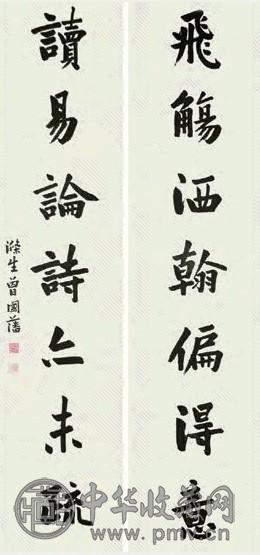 飛觴洒翰偏得意
讀易論詩亦未
滌生曾國藩
中华收藏网
www.pmv.cn